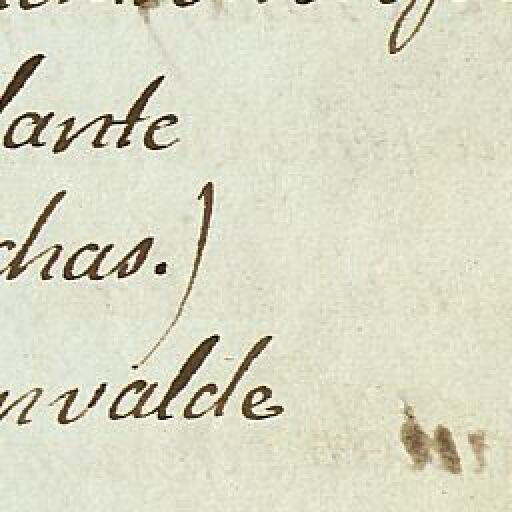 lante
chas.)
nvalde